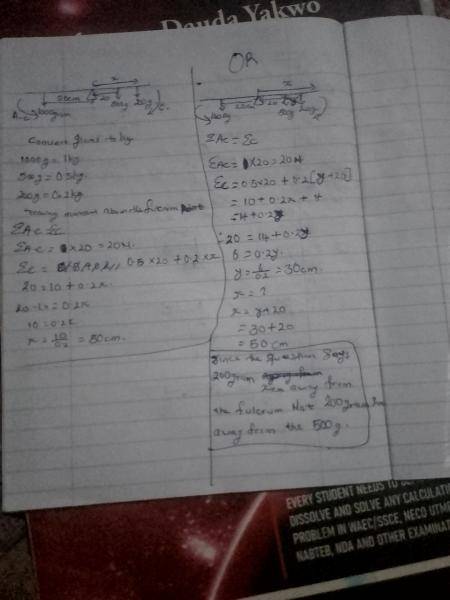 Dauda Yakwo
OR
x
20cm 20
500g 200g
Convert gram to kg
1000g = 1kg
500g = 0.5kg
200g = 0.2kg
Taking moment about the fulcrum
ΣAc = Σc
ΣAc = 1 x 20 = 20N
Σc = 0.5 x 20 + 0.2 x x
20 = 10 + 0.2x
20 - 10 = 0.2x
10 = 0.2x
x = 10/0.2 = 50cm.
x
20cm 20 y
500g 200g
ΣAc = Σc
ΣAc = 1 x 20 = 20N
Σc = 0.5 x 20 + 0.2 [y + 20]
= 10 + 0.2x + 4
= 14 + 0.2y
∴ 20 = 14 + 0.2y
6 = 0.2y.
y = 6/0.2 = 30cm.
x = ?
x = y + 20
= 30 + 20
= 50cm
Since the question says
200gram xcm away from
the fulcrum Not 200gram
away from the 500g.
EVERY STUDENT NEEDS TO
DISSOLVE AND SOLVE ANY CALCULATI
PROBLEM IN WAEC/SSCE, NECO UTME
NABTEB, NDA AND OTHER EXAMINAT